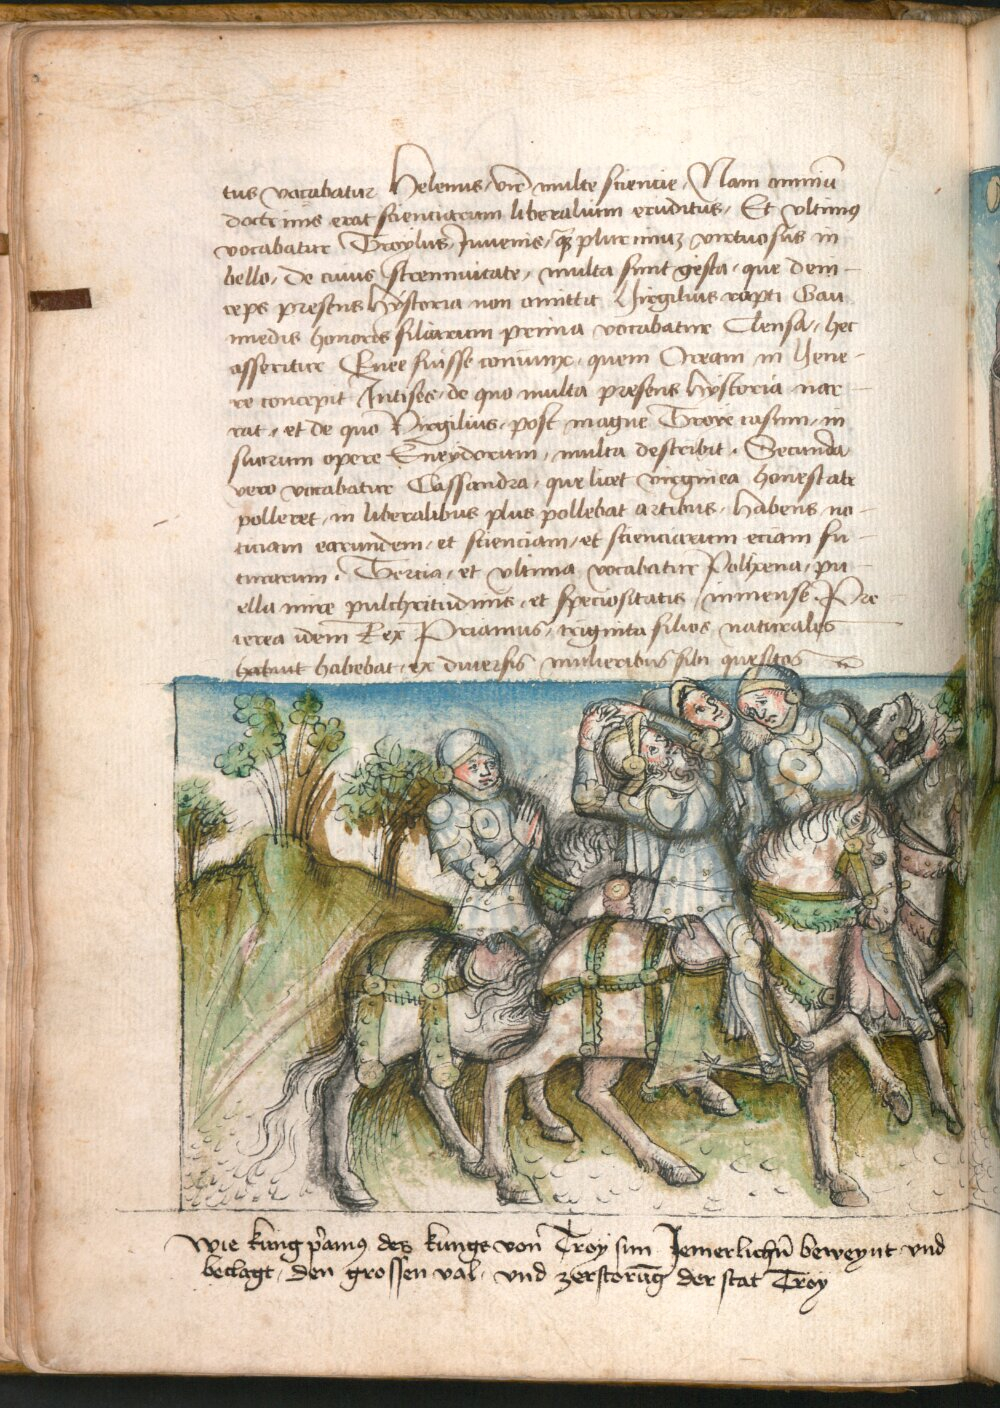 tus vocabatur Helenus, vir multe sciencie, Nam omniũ
doctrinis erat scienciarum liberalium eruditus, Et vltimus
vocabatur Troylus, Juvenis, qz plurimuz virtuosus in
bello, de cuius strennuitate, multa sunt gesta, que dein-
ceps presens hystoria non omittit Virgilius rapti Gan
imedis honores filiarum prima vocabatur Clensa, hec
asseritur Enee fuisse coniunx, quem Oream in Vene-
re concepit Antises, de quo multa presens hystoria nar-
rat, et de quo Virgilius, post magne Troye casum, in
suorum opere Eneydorum, multa describit. Secunda
vero vocabatur Cassandra, que licet virginea honestate
polleret, in liberalibus plus pollebat artibus, habens no-
ticiam earundem, et scienciam, et scienciarum eciam fu-
turarum. Tercia, et vltima vocabatur Polixena, pu-
ella mire pulchritudinis, et speciositatis inmense. Pre-
terea idem Rex Priamus, triginta filios naturales
habuit habebat, ex diuersis mulieribus sibi quesitos
Wie kung p̃amus des kungs von Troy sun Jemerlichñ beweynt vnd
beclagt, den grossen val, vnd zerstorũg der stat Troy